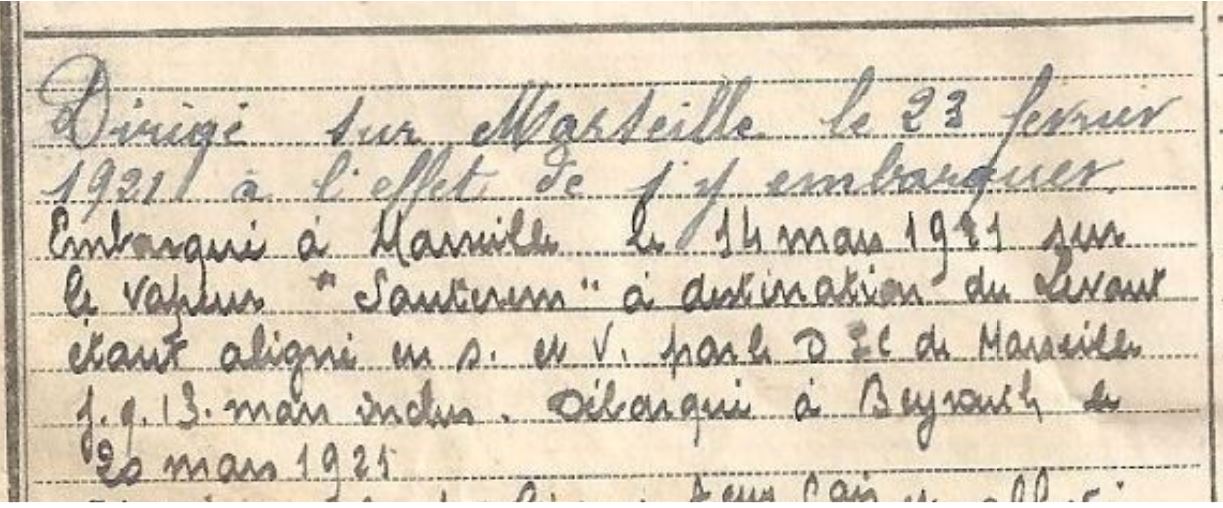 Dirigé sur Marseille le 23 fevrier
1921 à l'effet de s'y embarquer.
Embarqué à Marseille le 14 mars 1921 sur
le vapeur "Sauternes" à destination du Levant
étant aligné en s. et V. par le D I C de Marseille
j. q. 13. mars inclus. Débarqué à Beyrouth le
20 mars 1921